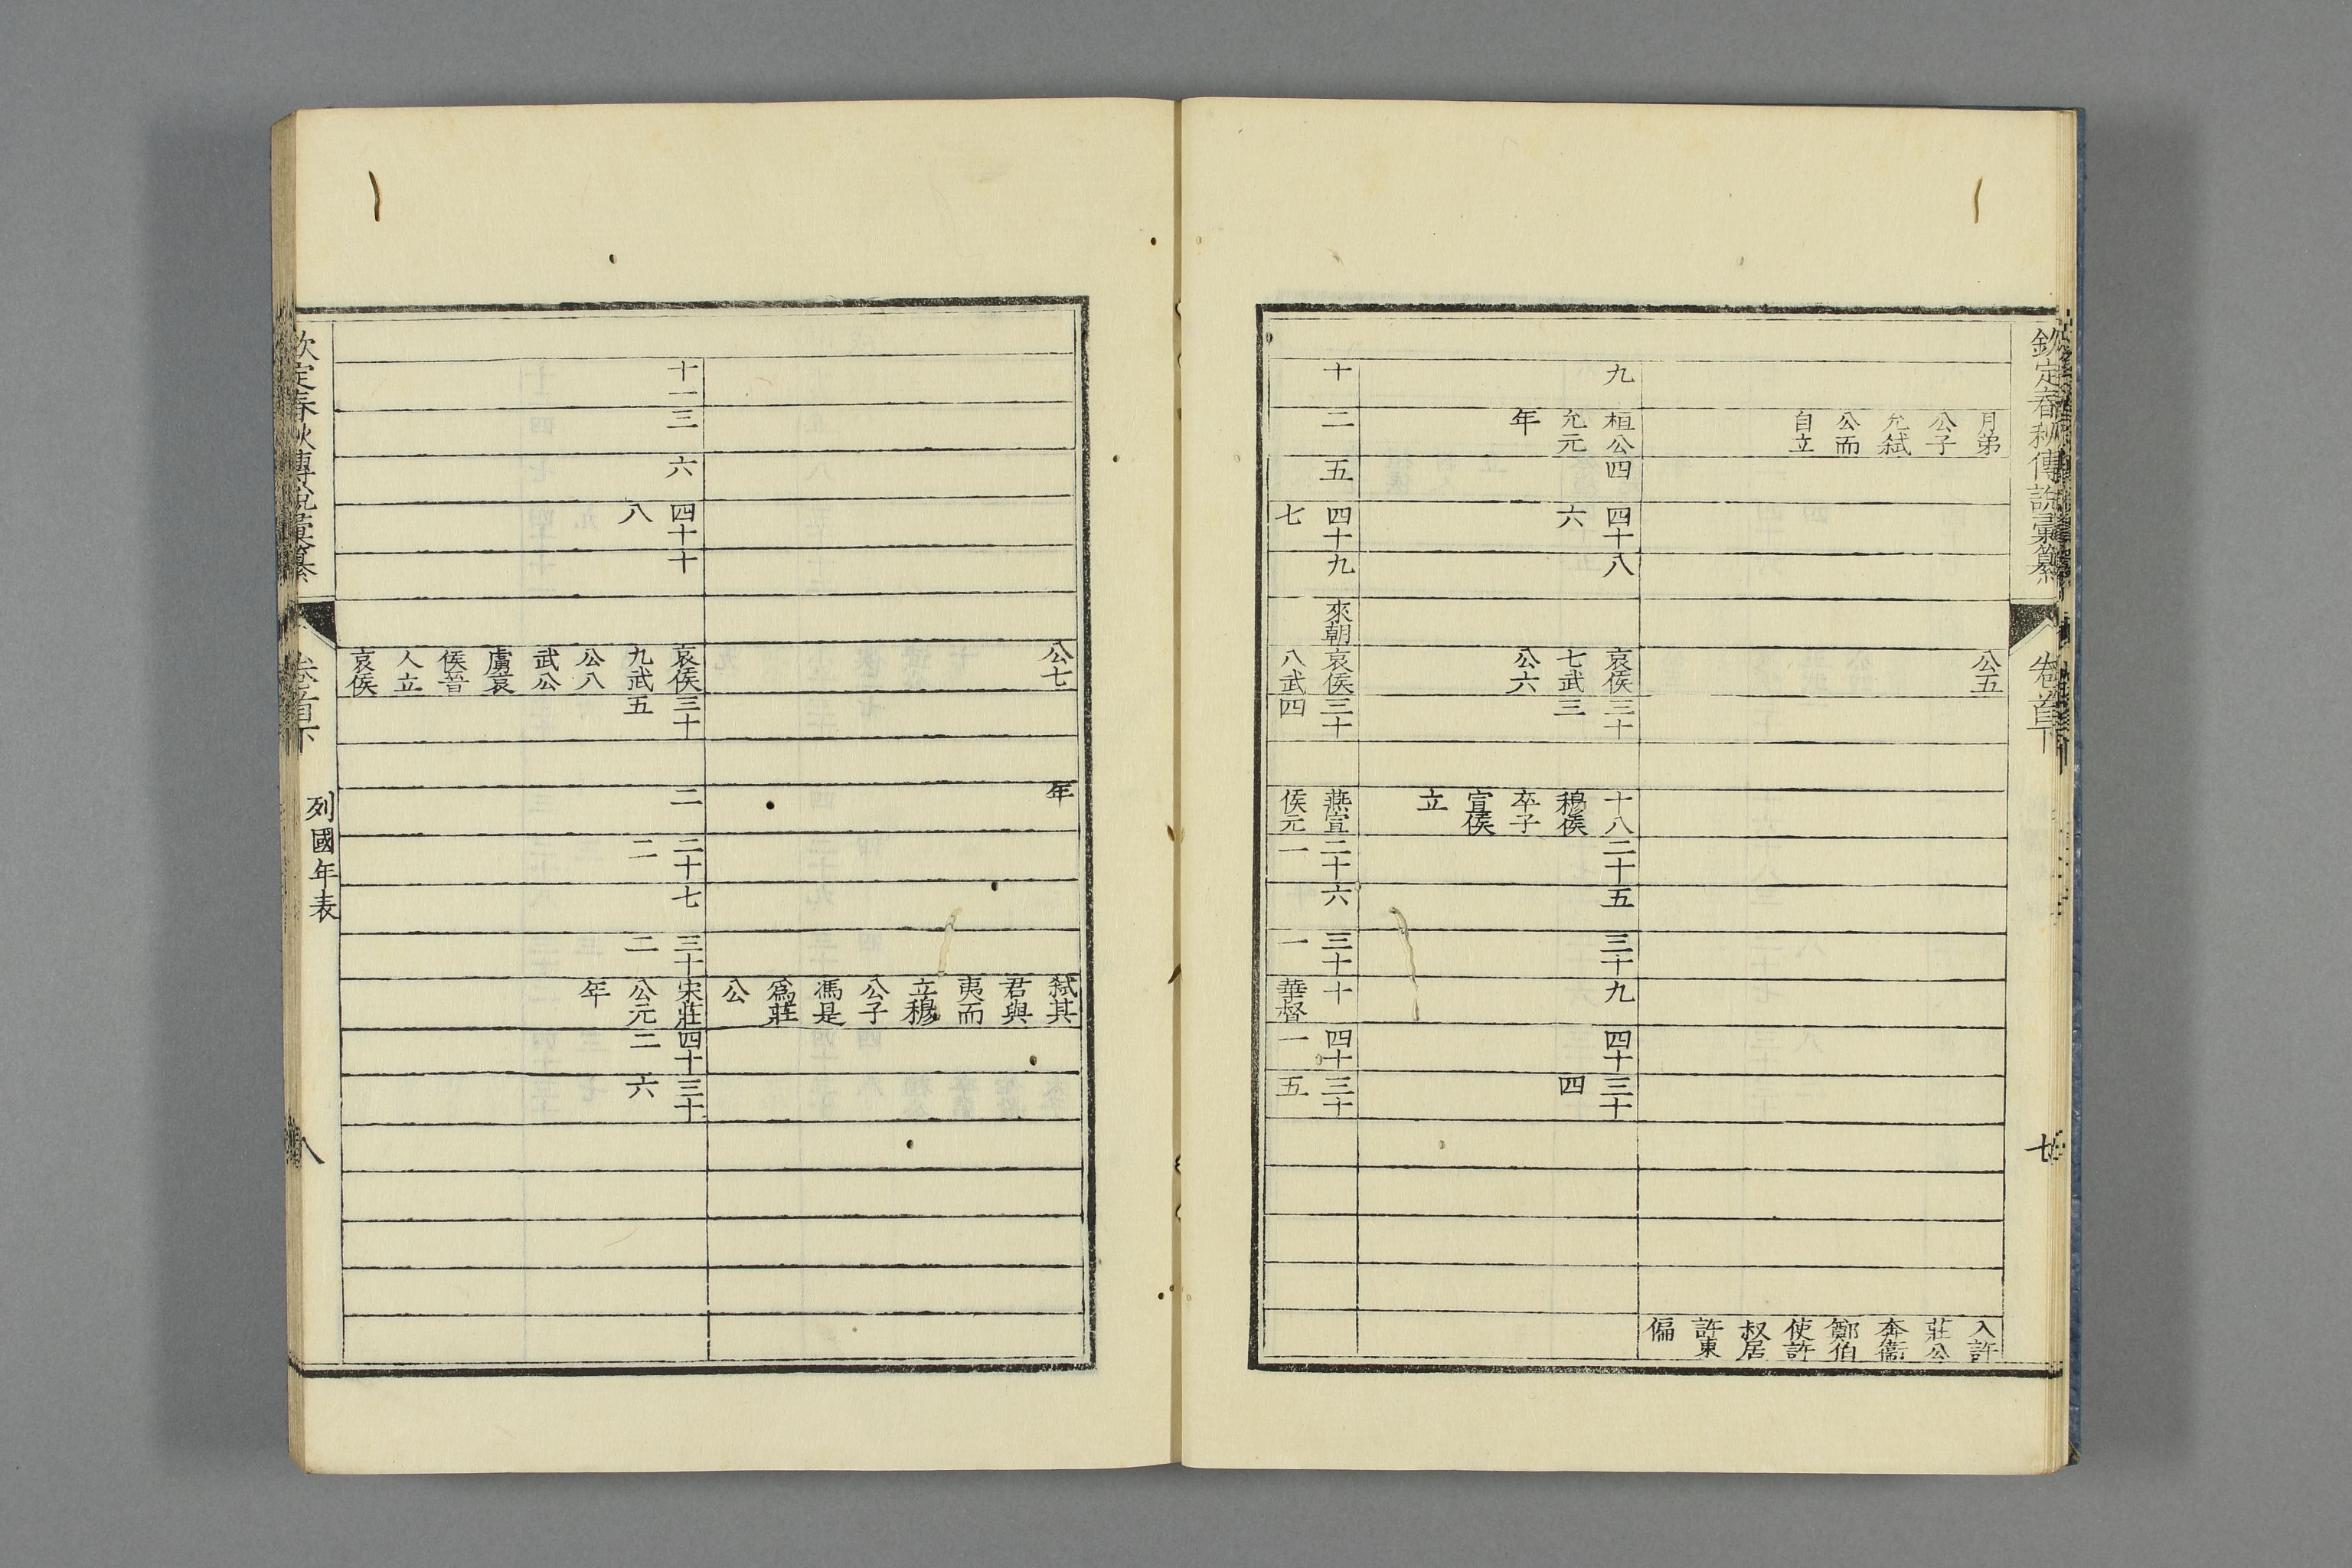 欽定春秋傳說彙纂
卷首下
七
月弟公子允弑公而自立
公五
入許莊公奔衞鄭伯使許叔居許東偏
九
桓公允元年
四
四十六
八
哀侯七武公六
三十三
十八穆侯卒子宣侯立
二十
五
三十
九
四十
三十四
十
二
五
四十七
九
來朝
哀侯八武
三十四
燕宣侯元
二十一
六
三十一
十華督
四十一
三十五
公七
年
弑其君與夷而立穆公子馮是爲莊公
十一
三
六
四十八
十
哀侯九武公八武公虜哀侯晉人立哀侯
三十五
二
二十二
七
三十二
宋莊公元年
四十二
三十六
欽定春秋傳說彙纂
卷首下
列國年表
八